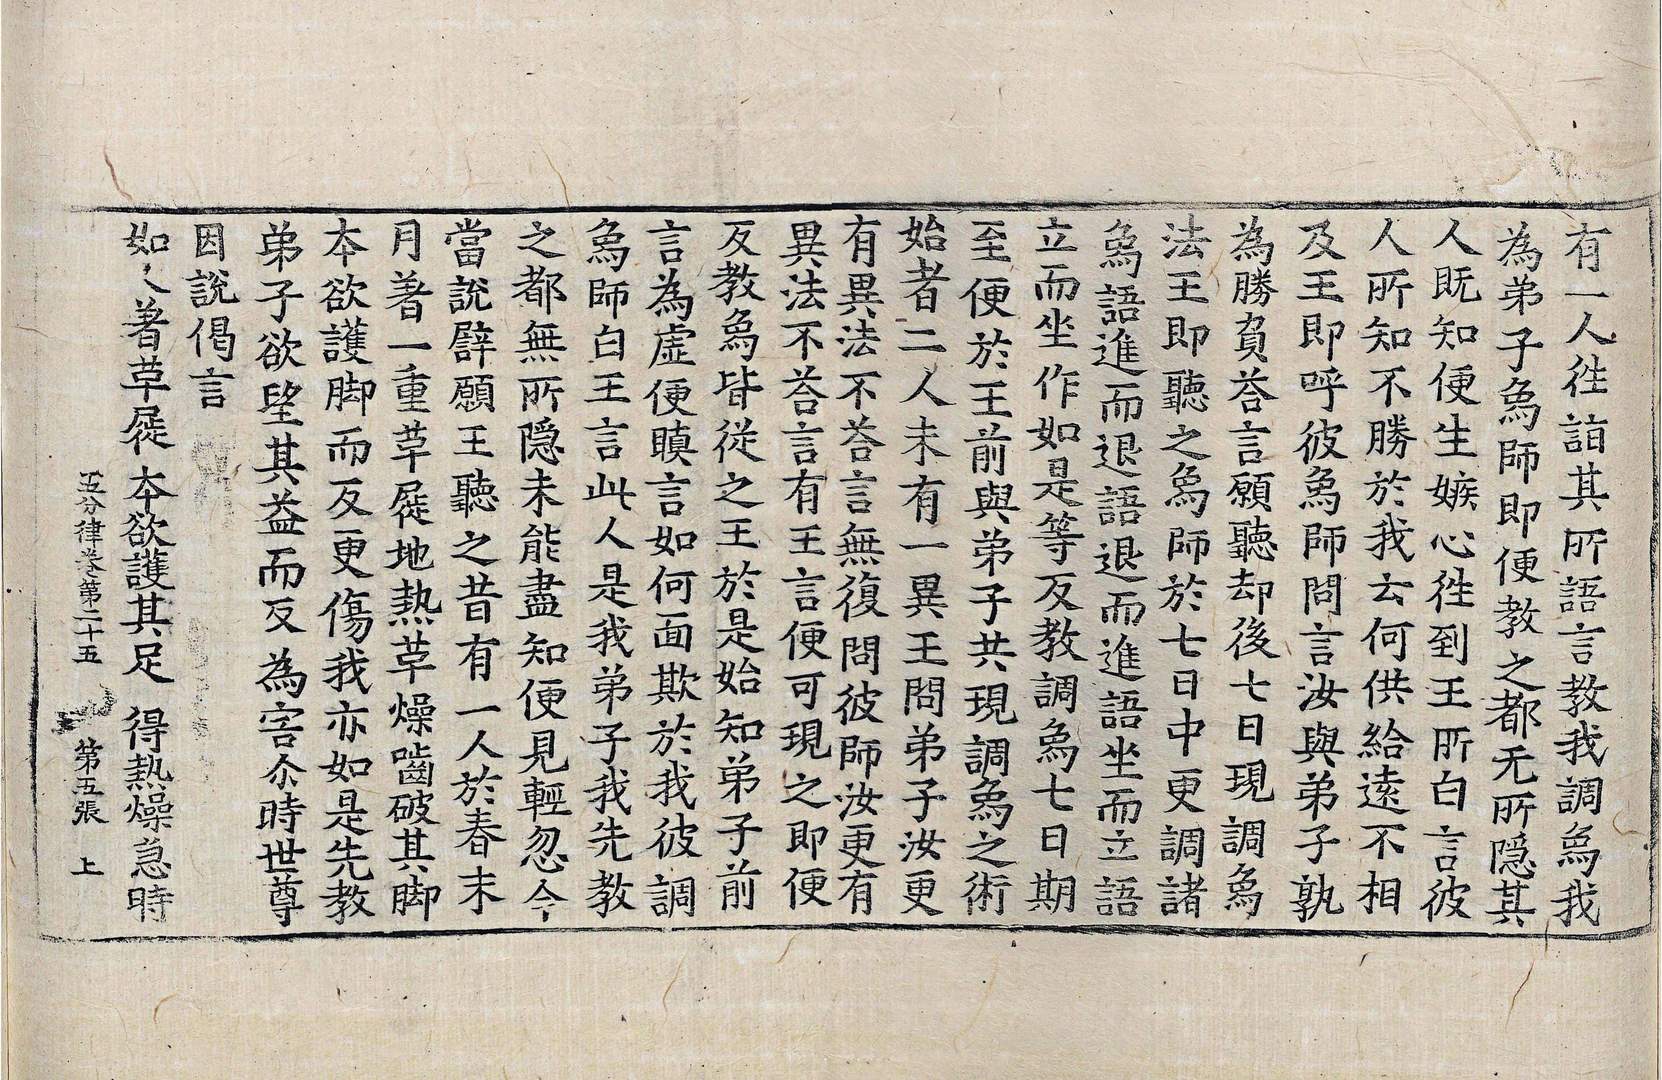 有一人往詣其所語言教我調鳥我
為弟子鳥師即便教之都无所隱其
人既知便生嫉心往到王所白言彼
人所知不勝於我云何供給遠不相
及王即呼彼鳥師問言汝與弟子孰
為勝負荅言願聽却後七日現調鳥
法王即聽之鳥師於七日中更調諸
鳥語進而退語退而進語坐而立語
立而坐作如是等反教調鳥七日期
至便於王前與弟子共現調鳥之術
始者二人未有一異王問弟子汝更
有異法不荅言無復問彼師汝更有
異法不荅言有王言便可現之即便
反教鳥皆從之王於是始知弟子前
言為虛便瞋言如何面欺於我彼調
鳥師白王言此人是我弟子我先教
之都無所隱未能盡知便見輕忽今
當說譬願王聽之昔有一人於春末
月著一重草屣地熱草燥嚙破其脚
本欲護脚而反更傷我亦如是先教
弟子欲望其益而反為害尒時世尊
因說偈言
如人著草屣 本欲護其足 得熱燥急時
五分律卷第二十五 第五張 上